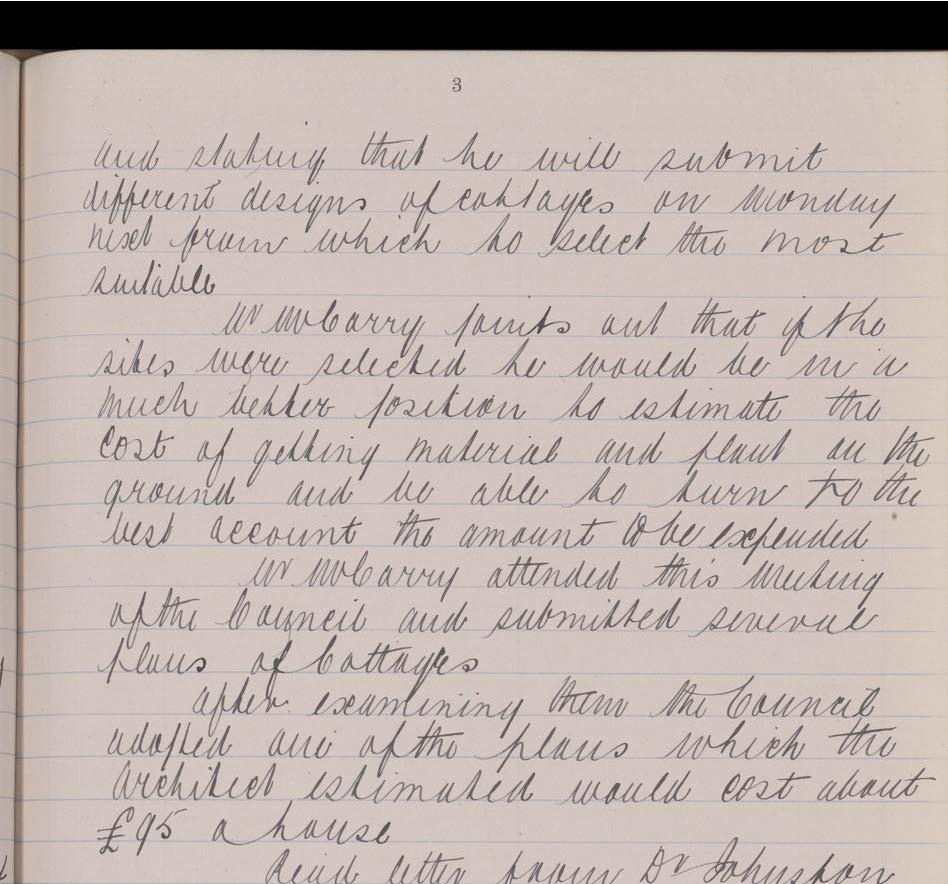 3
and stating that he will submit
different designs of cottages on Monday
next from which to select the most
suitable
Mr McCarry points out that if the
sites were selected he would be in a
much better position to estimate the
cost of getting material and plant on the
ground and be able to turn to the
best account the amount to be expended
Mr McCarry attended this Meeting
of the Council and submitted several
plans of Cottages
after examining them the Council
adopted one of the plans which the
Architect estimated would cost about
£95 a house
Read letter from Dr Johnston